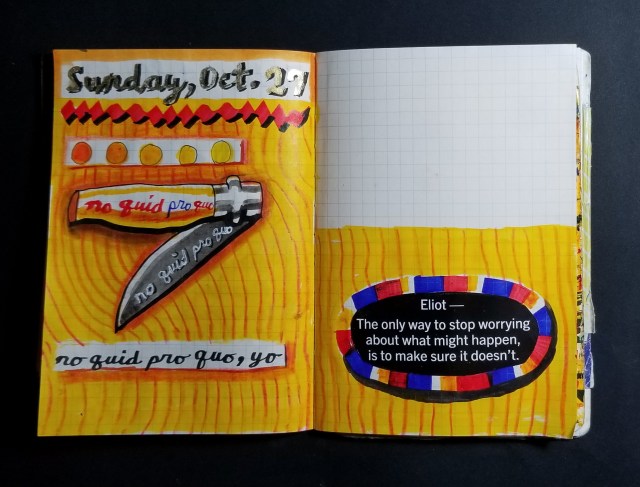 Sunday, Oct. 27
no quid pro quo
no quid pro quo
no quid pro quo, yo
Eliot —
The only way to stop worrying
about what might happen,
is to make sure it doesn't.